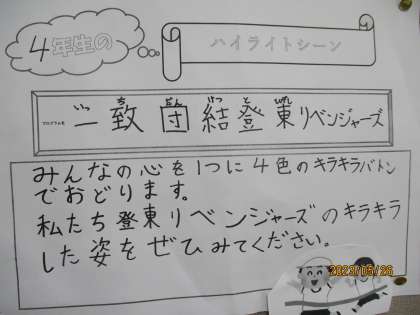 4年生の
ハイライトシーン
プログラム名
一致団結登東リベンジャーズ
いっ ち だん けつ と とう
みんなの心を1つに4色のキラキラバトン
でおどります。
私たち登東リベンジャーズのキラキラ
した姿をぜひみてください。
2023/05/26